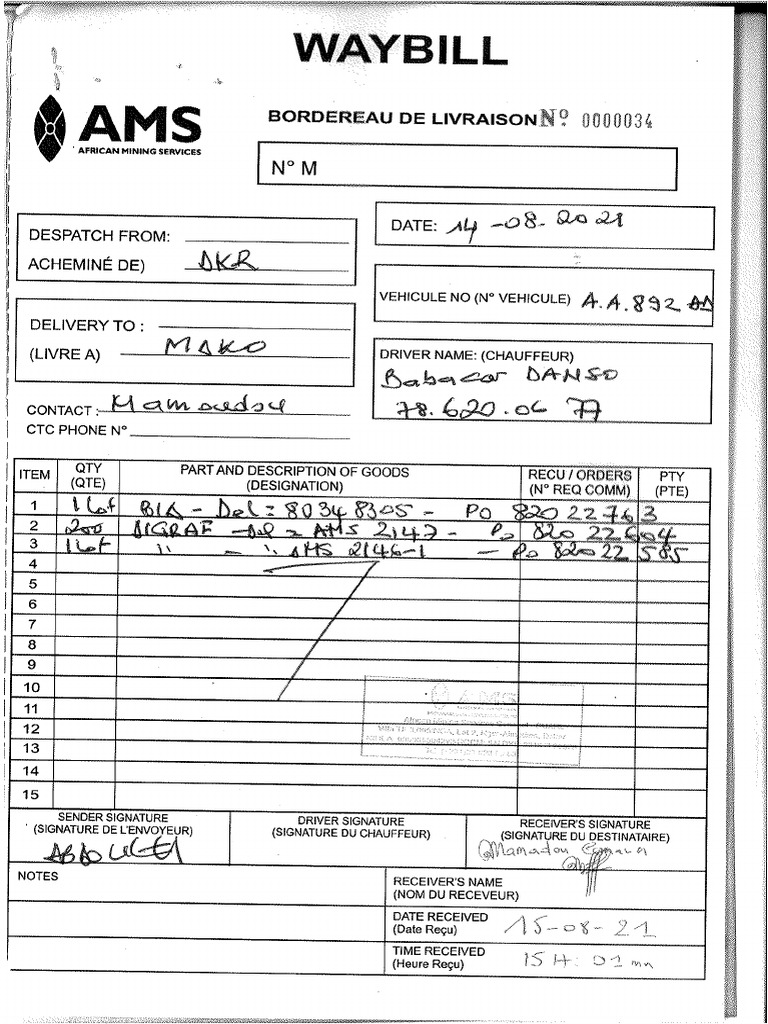 WAYBILL
AMS
AFRICAN MINING SERVICES
BORDEREAU DE LIVRAISON Nº 0000034
N° M
DESPATCH FROM:
ACHEMINÉ DE) DKR
DATE: 14-08.2021
VEHICULE NO (N° VEHICULE) A.A.892
DELIVERY TO :
(LIVRE A) MAKO
DRIVER NAME: (CHAUFFEUR)
Babacar DANSO
78.620.06 77
CONTACT : Mamoudou
CTC PHONE N°
ITEM QTY (QTE) PART AND DESCRIPTION OF GOODS (DESIGNATION) RECU / ORDERS (N° REQ COMM) PTY (PTE)
1 1 Lot BIA - Del = 80348305 - PO 820 22763
2 200 DIGRAF - Del = AMS 2147 - Po 820 22604
3 1 Lot " - " AMS 2146-1 - Po 82022585
4
5
6
7
8
9
10
11
12
13
14
15
AMS
SENDER SIGNATURE
(SIGNATURE DE L'ENVOYEUR)
DRIVER SIGNATURE
(SIGNATURE DU CHAUFFEUR)
RECEIVER'S SIGNATURE
(SIGNATURE DU DESTINATAIRE)
Mamadou
NOTES
RECEIVER'S NAME
(NOM DU RECEVEUR)
DATE RECEIVED
(Date Reçu) 15-08-21
TIME RECEIVED
(Heure Reçu) 15H:01mn